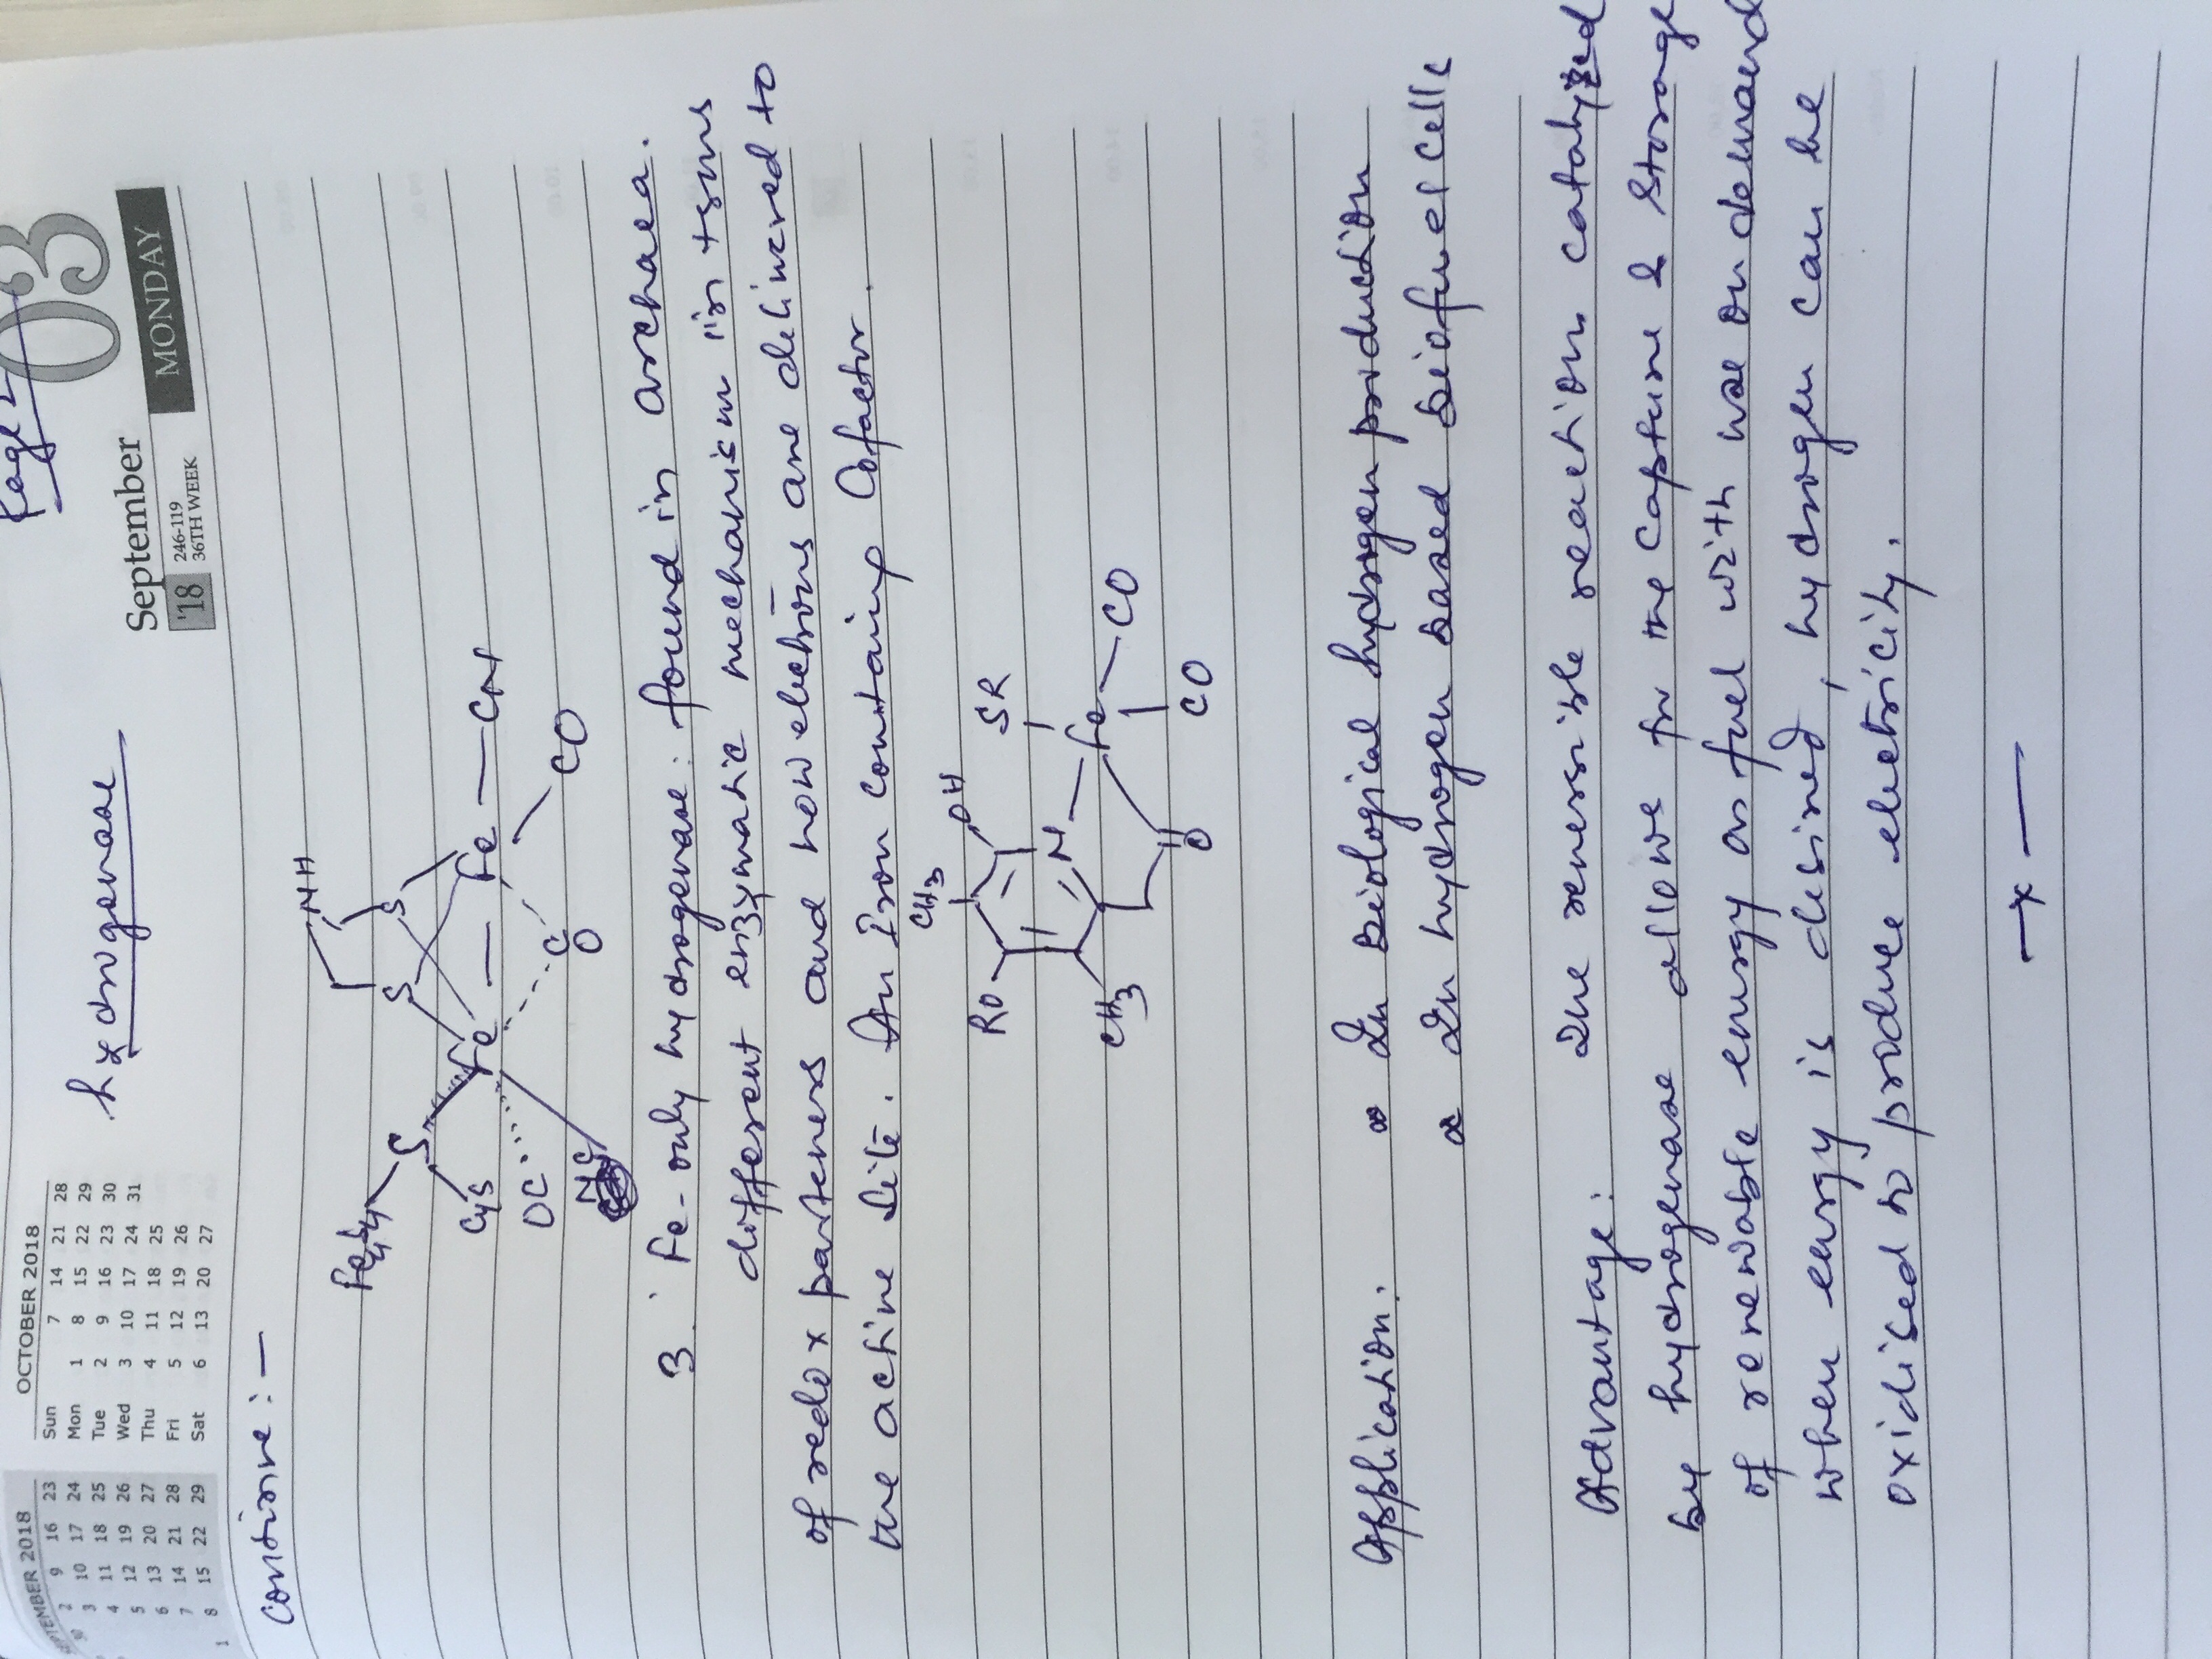 Page 2
SEPTEMBER 2018
30 2 9 16 23
3 10 17 24
4 11 18 25
5 12 19 26
6 13 20 27
7 14 21 28
1 8 15 22 29
OCTOBER 2018
Sun 7 14 21 28
Mon 1 8 15 22 29
Tue 2 9 16 23 30
Wed 3 10 17 24 31
Thu 4 11 18 25
Fri 5 12 19 26
Sat 6 13 20 27
hydrogenase
September
'18
246-119
36TH WEEK
03
MONDAY
Continue :-
NH
S S
Fe4S4 S Fe Fe CN
Cys
OC
CO
C
O
NC
3. Fe-only hydrogenase: found in archaea.
different enzymatic mechanism in terms
of redox parteners and how electrons are delivered to
the active site. An Iron containing Cofactor.
CH3
OH SR
RO
N Fe CO
CH3
O CO
Application. In Biological hydrogen production
In hydrogen based biofuel cells
Advantage: The reversible reaction catalyzed
by hydrogenase allows for the capture & storage
of renewable energy as fuel with use on demand
when energy is desired, hydrogen can be
oxidised to produce electricity.
— x —